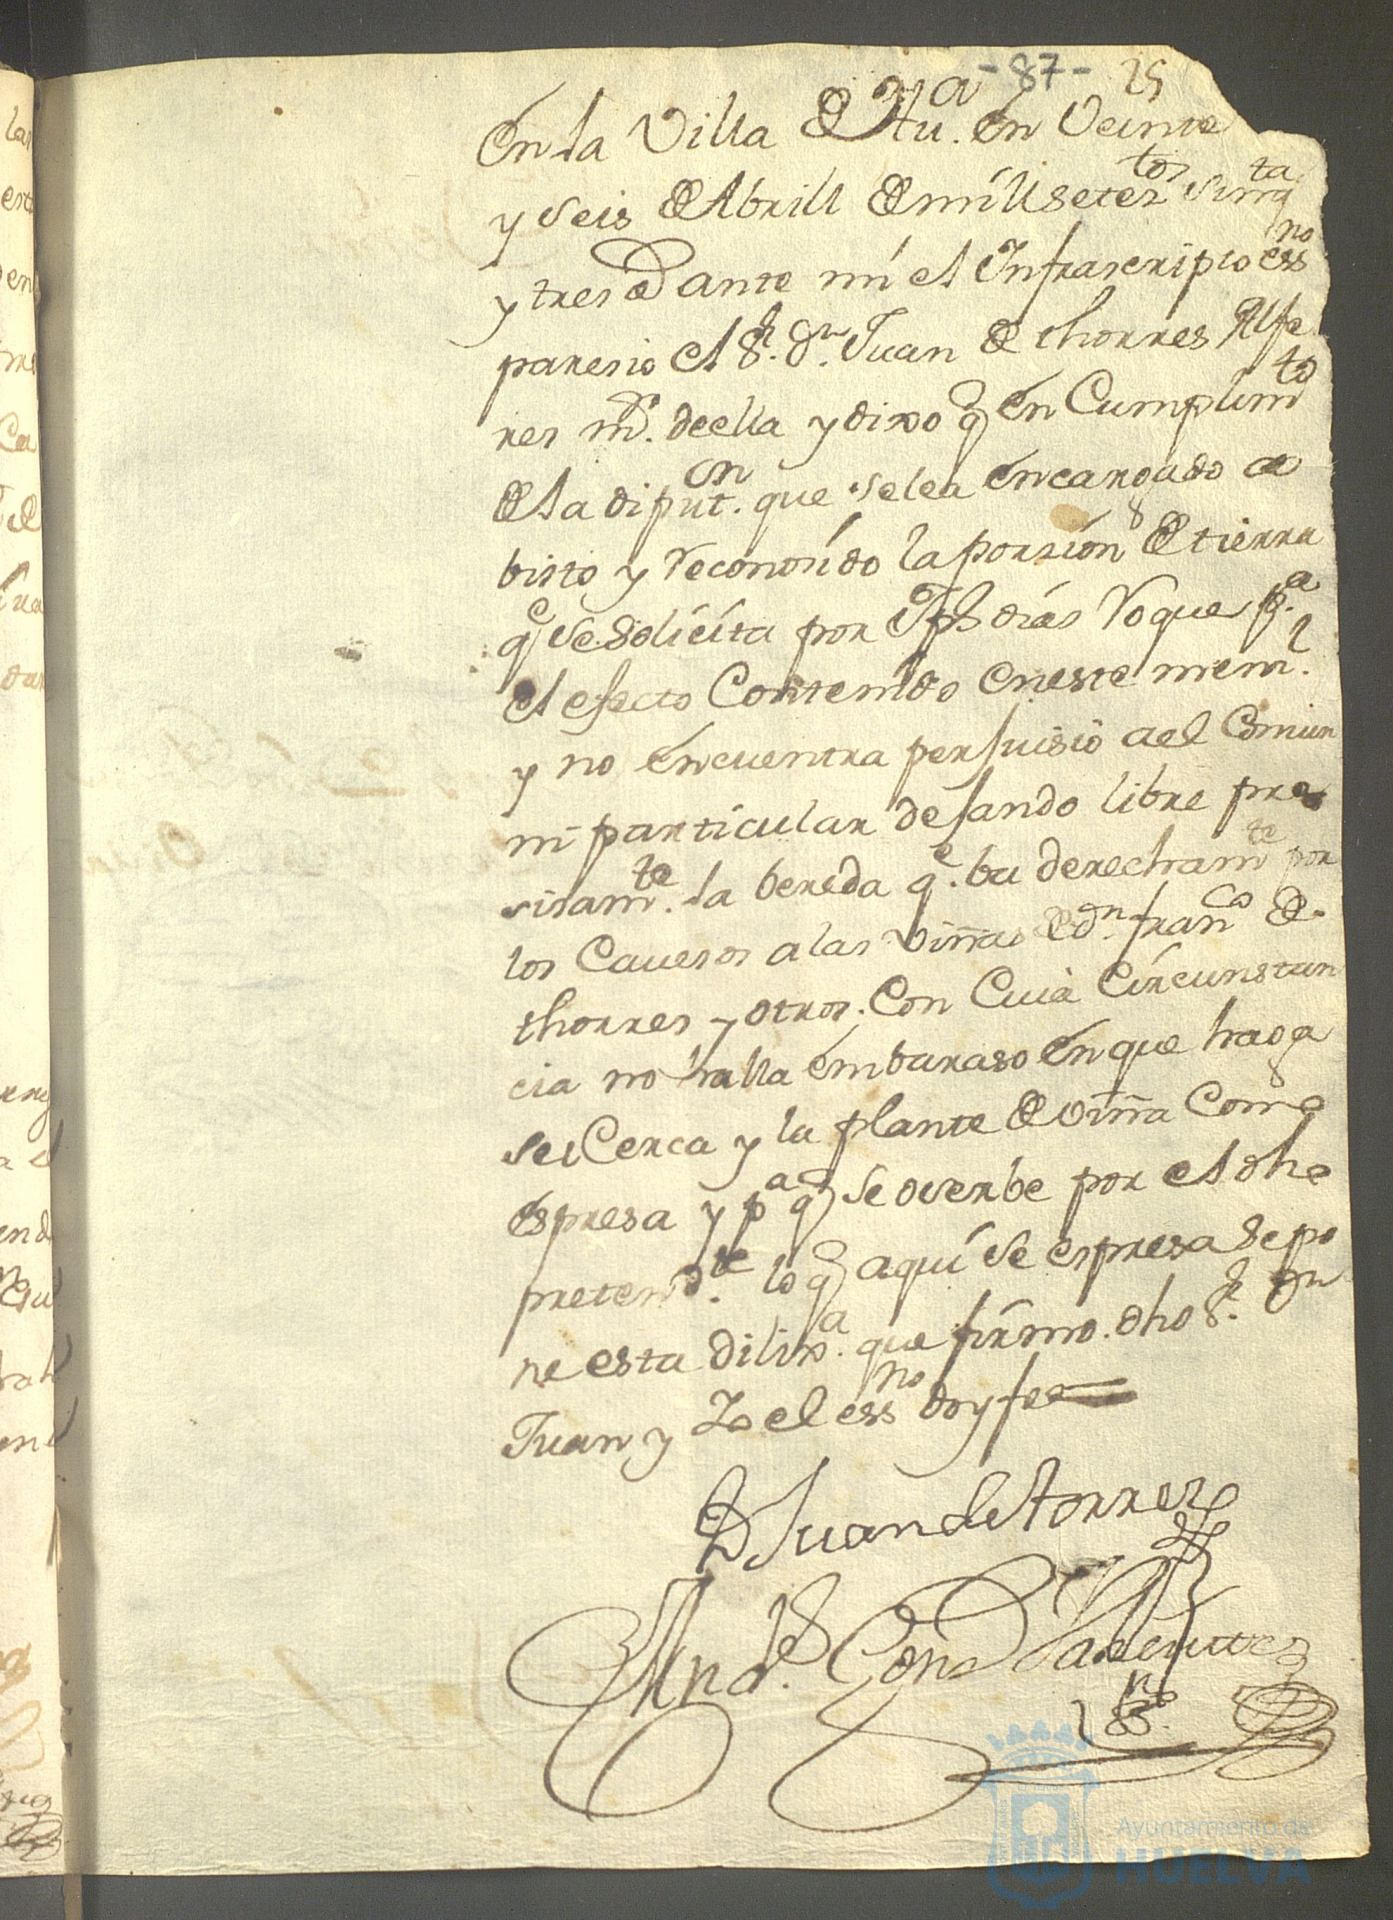 -87- 25
En la Villa de Hua. en Veinte
y seis de Abrill de mill seteztos sinqta
y tres ante mi el Infrascripto essno
paresio el Sr. Dn. Juan de thorres Alfe
res mr. de ella y dixo q en Cumplimto
de la diputon. que se le a encargado a
bisto y reconosido la porsion de tierra
qe se Solicita por Jph dias Roque pa.
el efecto Contenido en este meml.
y no encuentra perjuisio a el Comun
ni particular dejando libre pre
sisamte. la bereda qe. ba derechamte por
los Cavesos a las viñas de dn. franco de
thorres y otros. Con Cuia Circunstan
cia no halla embaraso en que haga
se Cerca y la plante de viña Como
espresa y pa q se oserbe por el dho
pretendte. lo q aqui se espresa se po
ne esta dilixa. que firmo. dho Sr. Dn
Juan y Yo el essno doy fee
D Juan de torres
Andrs. Cons